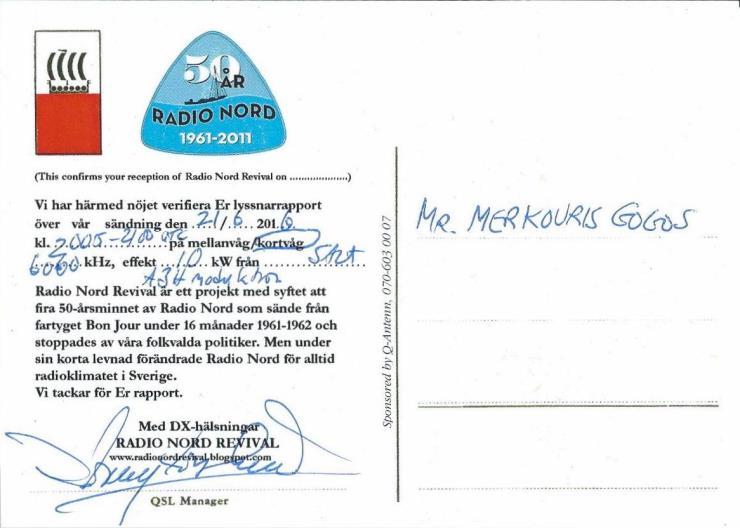 50
ÅR
RADIO NORD
1961-2011
(This confirms your reception of Radio Nord Revival on ....................)
Vi har härmed nöjet verifiera Er lyssnarrapport
över vår sändning den 21/6 2016
kl. 2005-2100 UTC på mellanvåg/kortvåg
6060 kHz, effekt 10 kW från
A3H
Radio Nord Revival är ett projekt med syftet att
fira 50-årsminnet av Radio Nord som sände från
fartyget Bon Jour under 16 månader 1961-1962 och
stoppades av våra folkvalda politiker. Men under
sin korta levnad förändrade Radio Nord för alltid
radioklimatet i Sverige.
Vi tackar för Er rapport.
Med DX-hälsningar
RADIO NORD REVIVAL
www.radionordrevival.blogspot.com
QSL Manager
Sponsored by Q-Antenn, 070-603 00 07
MR. MERKOURIS GOGOS